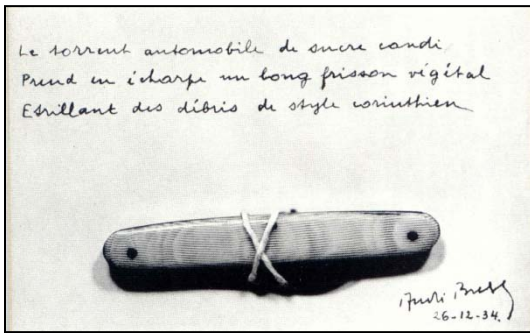 Le torrent automobile de sucre candi
Prend en écharpe un long frisson végétal
Etrillant des débris de style corinthien
André Breton
26-12-34.